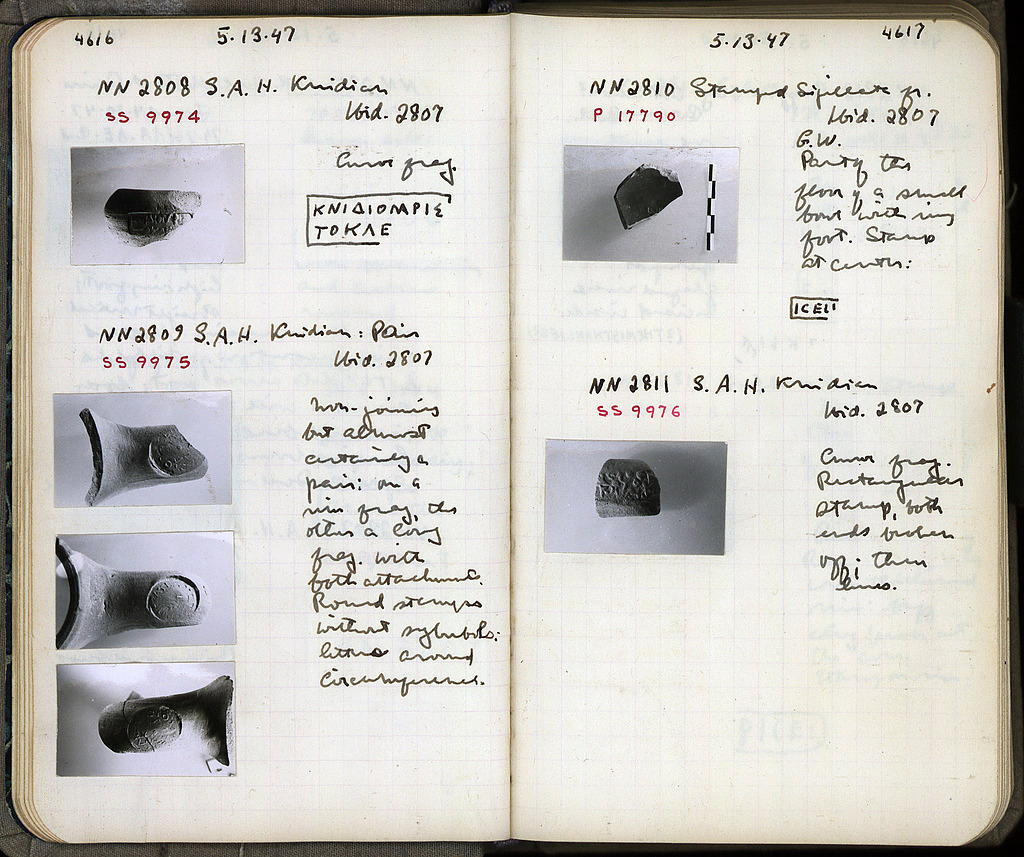 4616
5.13.47
NN 2808 S.A.H. Knidian
SS 9974
Ibid. 2807
Curve frag.
ΚΝΙΔΙΟΝΑΡΙΣ
ΤΟΚΛΕ
NN 2809 S.A.H. Knidian: Pair
SS 9975
Ibid. 2807
Non-joining
but almost
certainly a
pair: on a
rim frag, the
other a long
frag. with
both attachments.
Round stamps
without symbols:
letters around
circumference.
5.13.47
4617
NN 2810 Stamped Sigillata fr.
P 17790
Ibid. 2807
G.W.
Part of the
floor of a small
bowl with ring
foot. Stamp
at center:
NN 2811 S.A.H. Knidian
SS 9976
Ibid. 2807
Curve frag.
Rectangular
stamp, both
ends broken
off; three
lines.